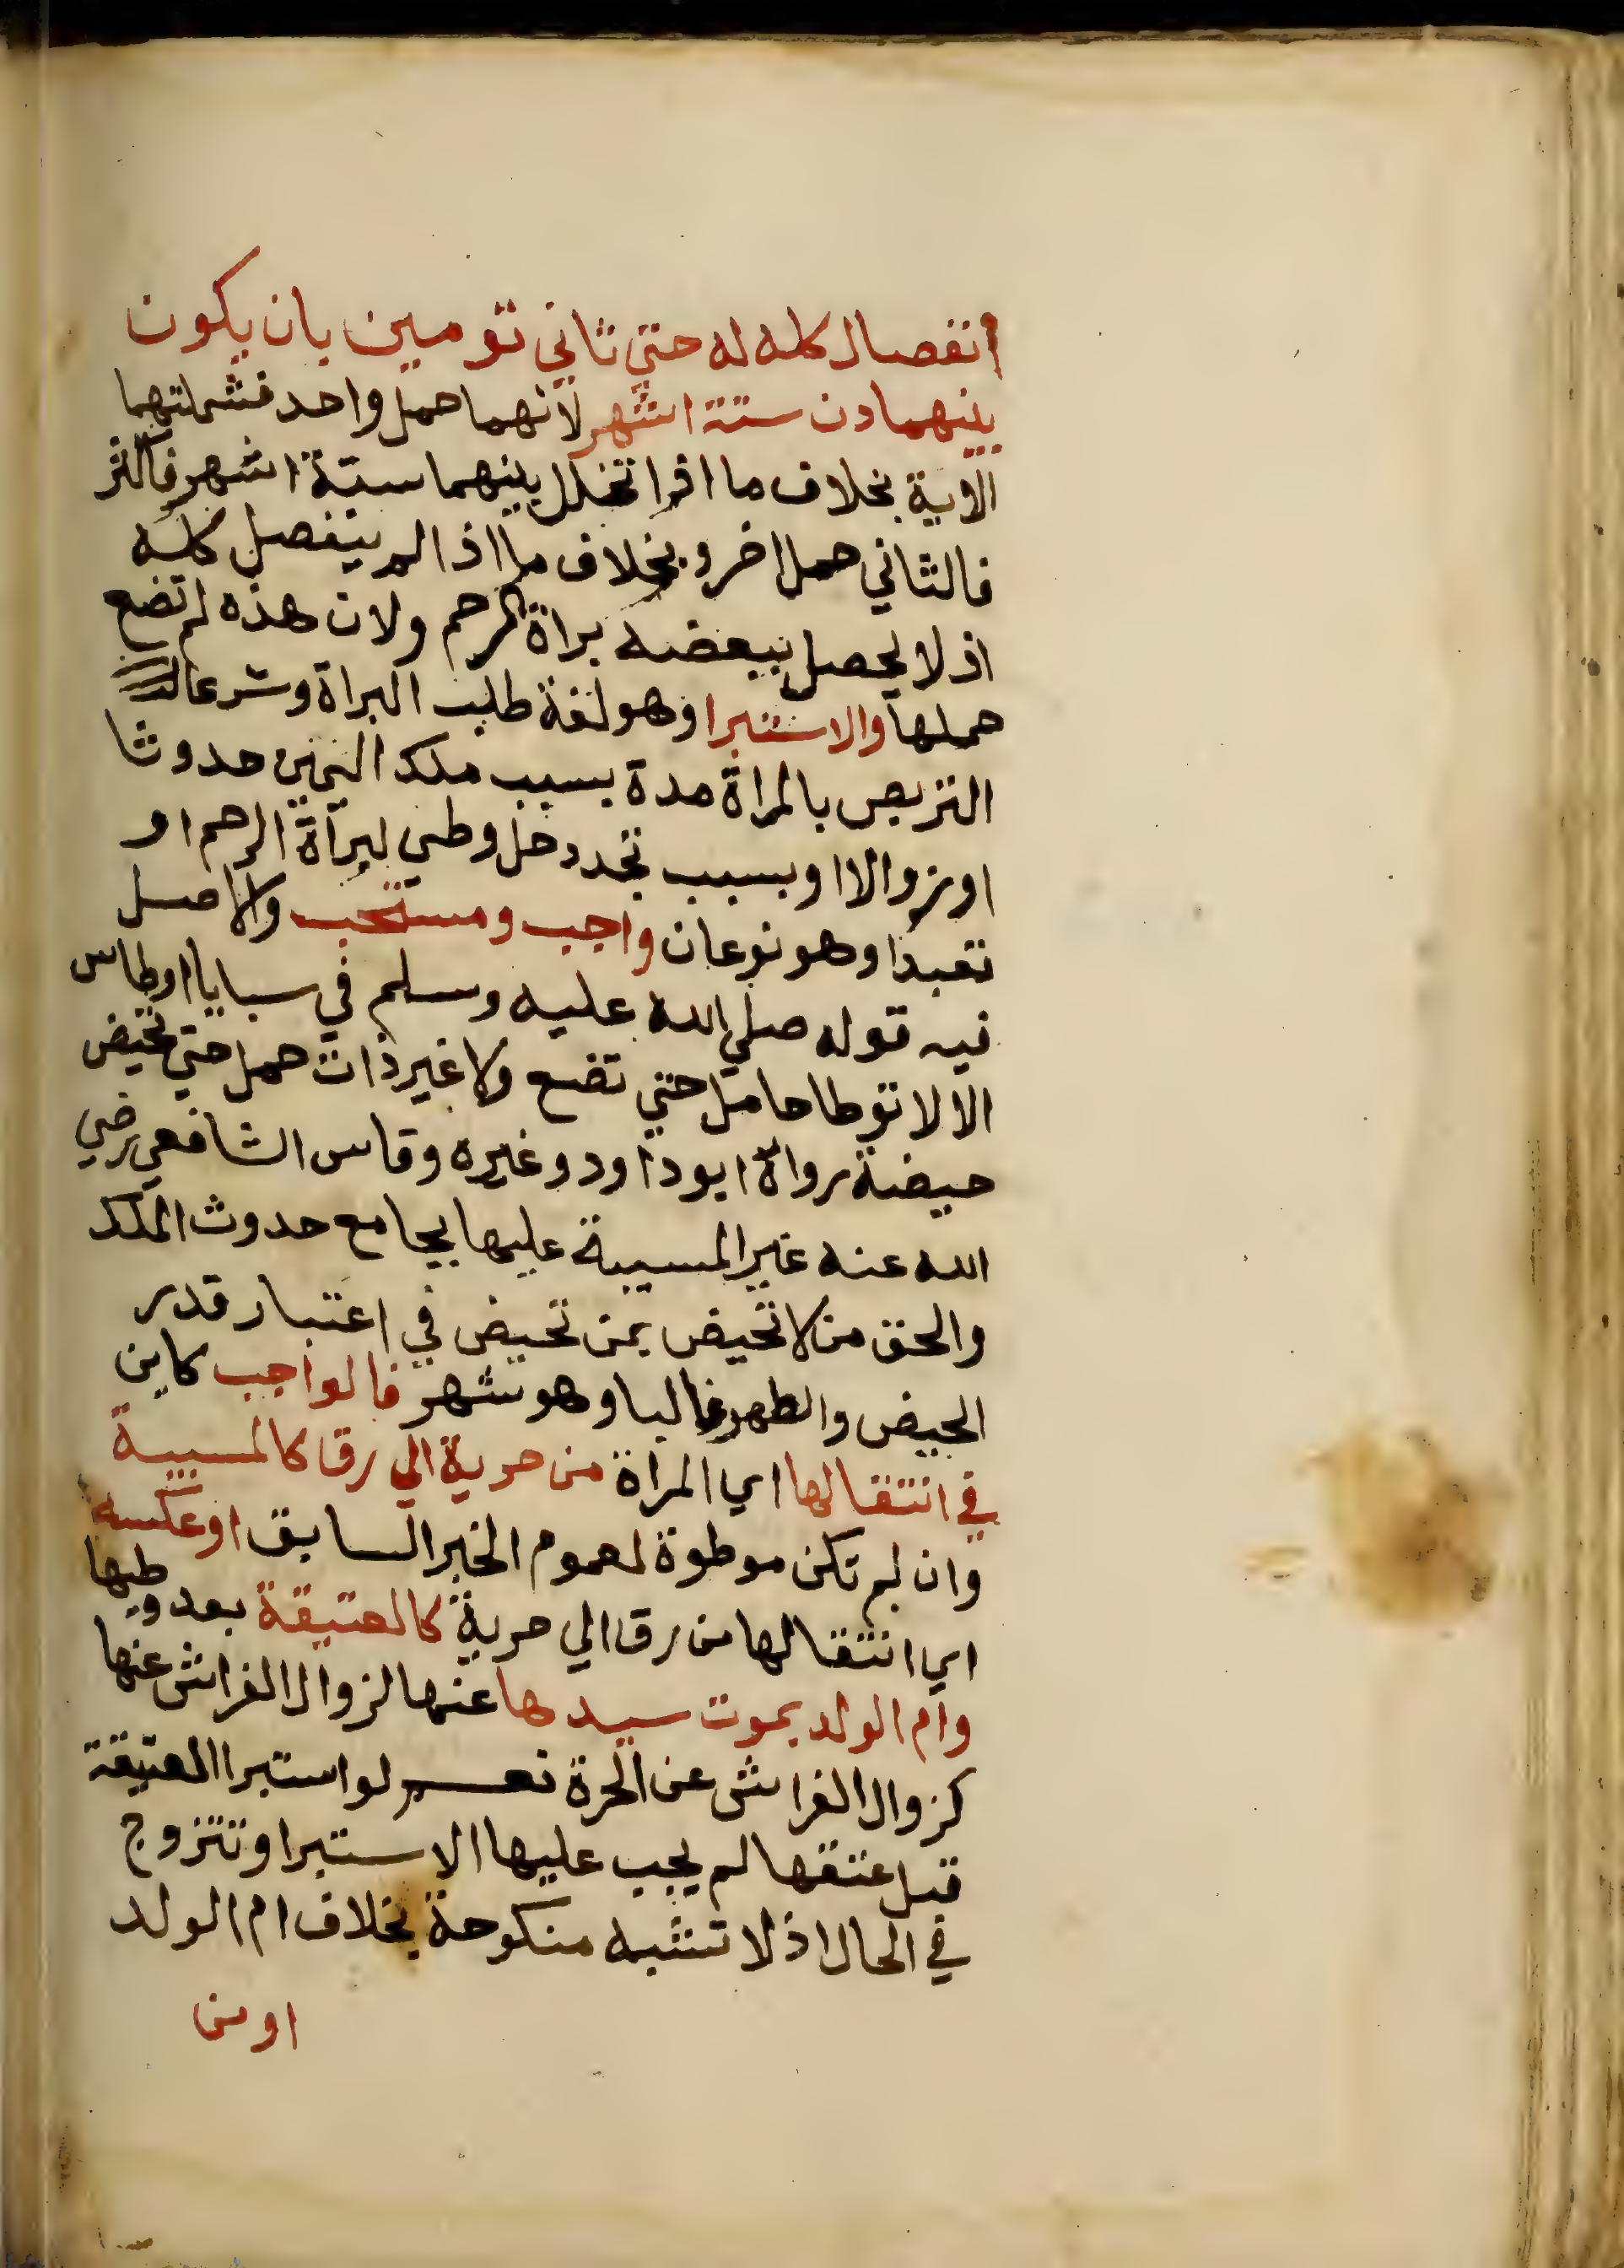 انفصال كله له حتي ثاني تومين بان يكون
بينهما دن ستة اشهر لانهما حمل واحد فشملتهما
الاية بخلاف ما اذا تخلل بينهما ستة اشهر فاكثر
فالثاني حمل اخر وبخلاف ما اذا لم ينفصل كله
اذ لا يحصل ببعضه براة الرحم ولان هذه لم تضع
حملها والاستبرا وهو لغة طلب البراة وشرعا
التربص بالمراة مدة بسبب ملك اليمين حدوثا
او زوالا او بسبب تجدد حل وطي لبراة الرحم او
تعبدا وهو نوعان واجب ومستحب والاصل
فيه قوله صلي الله عليه وسلم في سبايا اوطاس
الا لا توطا حامل حتي تضع ولا غير ذات حمل حتي تحيض
حيضة رواه ابو داود وغيره وقاس الشافعي رضي
الله عنه غير المسبية عليها بجامع حدوث الملك
والحق من لا تحيض بمن تحيض في اعتبار قدر
الحيض والطهر غالبا وهو شهر فالواجب كاين
في انتقالها اي المراة من حرية الي رق كالمسبية
وان لم تكن موطوة لعموم الخبر السابق او عكسه
اي انتقالها من رق الي حرية كالعتيقة بعد وطيها
وام الولد بموت سيدها عنها لزوال الفراش عنها
كزوال الفراش عن الحرة نعم لو استبرا العتيقة
قبل عتقها لم يجب عليها الاستبرا وتتزوج
في الحال اذ لا تشبه منكوحة بخلاف ام الولد
او من